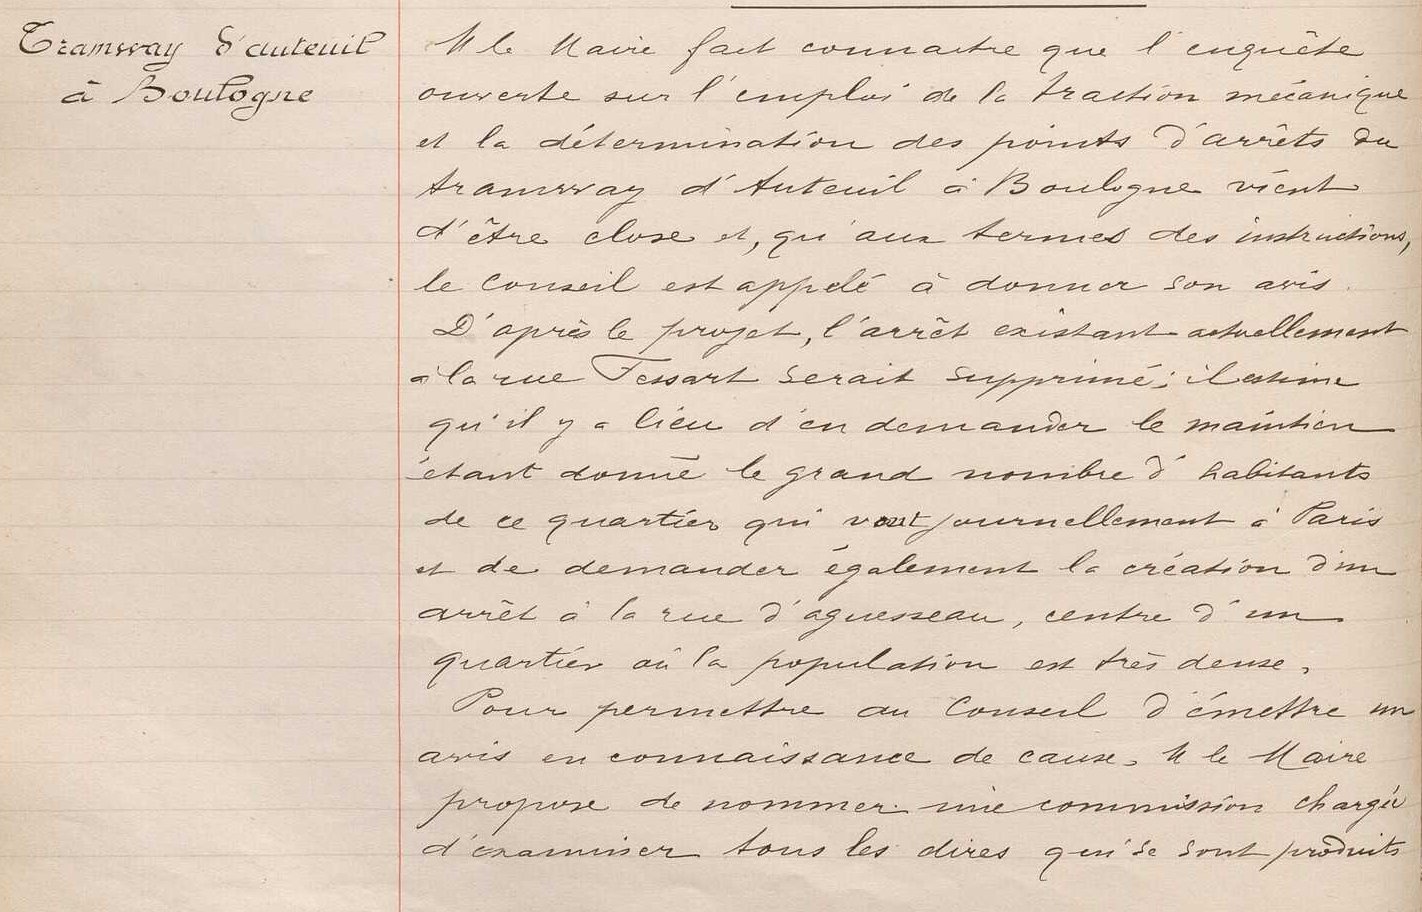 Tramway d'auteuil
à Boulogne
M le Maire fait connaitre que l'enquête
ouverte sur l'emploi de la traction mécanique
et la détermination des points d'arrêts du
tramway d'Auteuil à Boulogne vient
d'être close et, qu'aux termes des instructions,
le Conseil est appelé à donner son avis.
D'après le projet, l'arrêt existant actuellement
à la rue Fessart serait supprimé; il estime
qu'il y a lieu d'en demander le maintien
étant donné le grand nombre d'habitants
de ce quartier qui vont journellement à Paris
et de demander également la création d'un
arrêt à la rue d'aguesseau, centre d'un
quartier où la population est très dense.
Pour permettre au Conseil d'émettre un
avis en connaissance de cause, M le Maire
propose de nommer une commission chargée
d'examiner tous les dires qui se sont produits